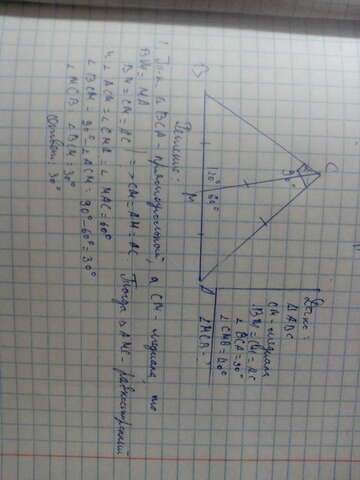 Дано:
△ABC
CM - медиана
BM = CM = AC
∠BCA = 90°
∠MCB - ?
B
C
M
A
90°
120°
60°
Решение:
1. Т.к. △BCA - прямоугольный, а CM - медиана, то
BM = MA
BM = CM = AC } => CM = AM = AC Тогда △AMC - равносторонний
∠ACM = ∠CMA = ∠MAC = 60°
∠BCM = 90° - ∠ACM = 90° - 60° = 30°
∠MCB ∠BCM = 30°
Ответ: 30°